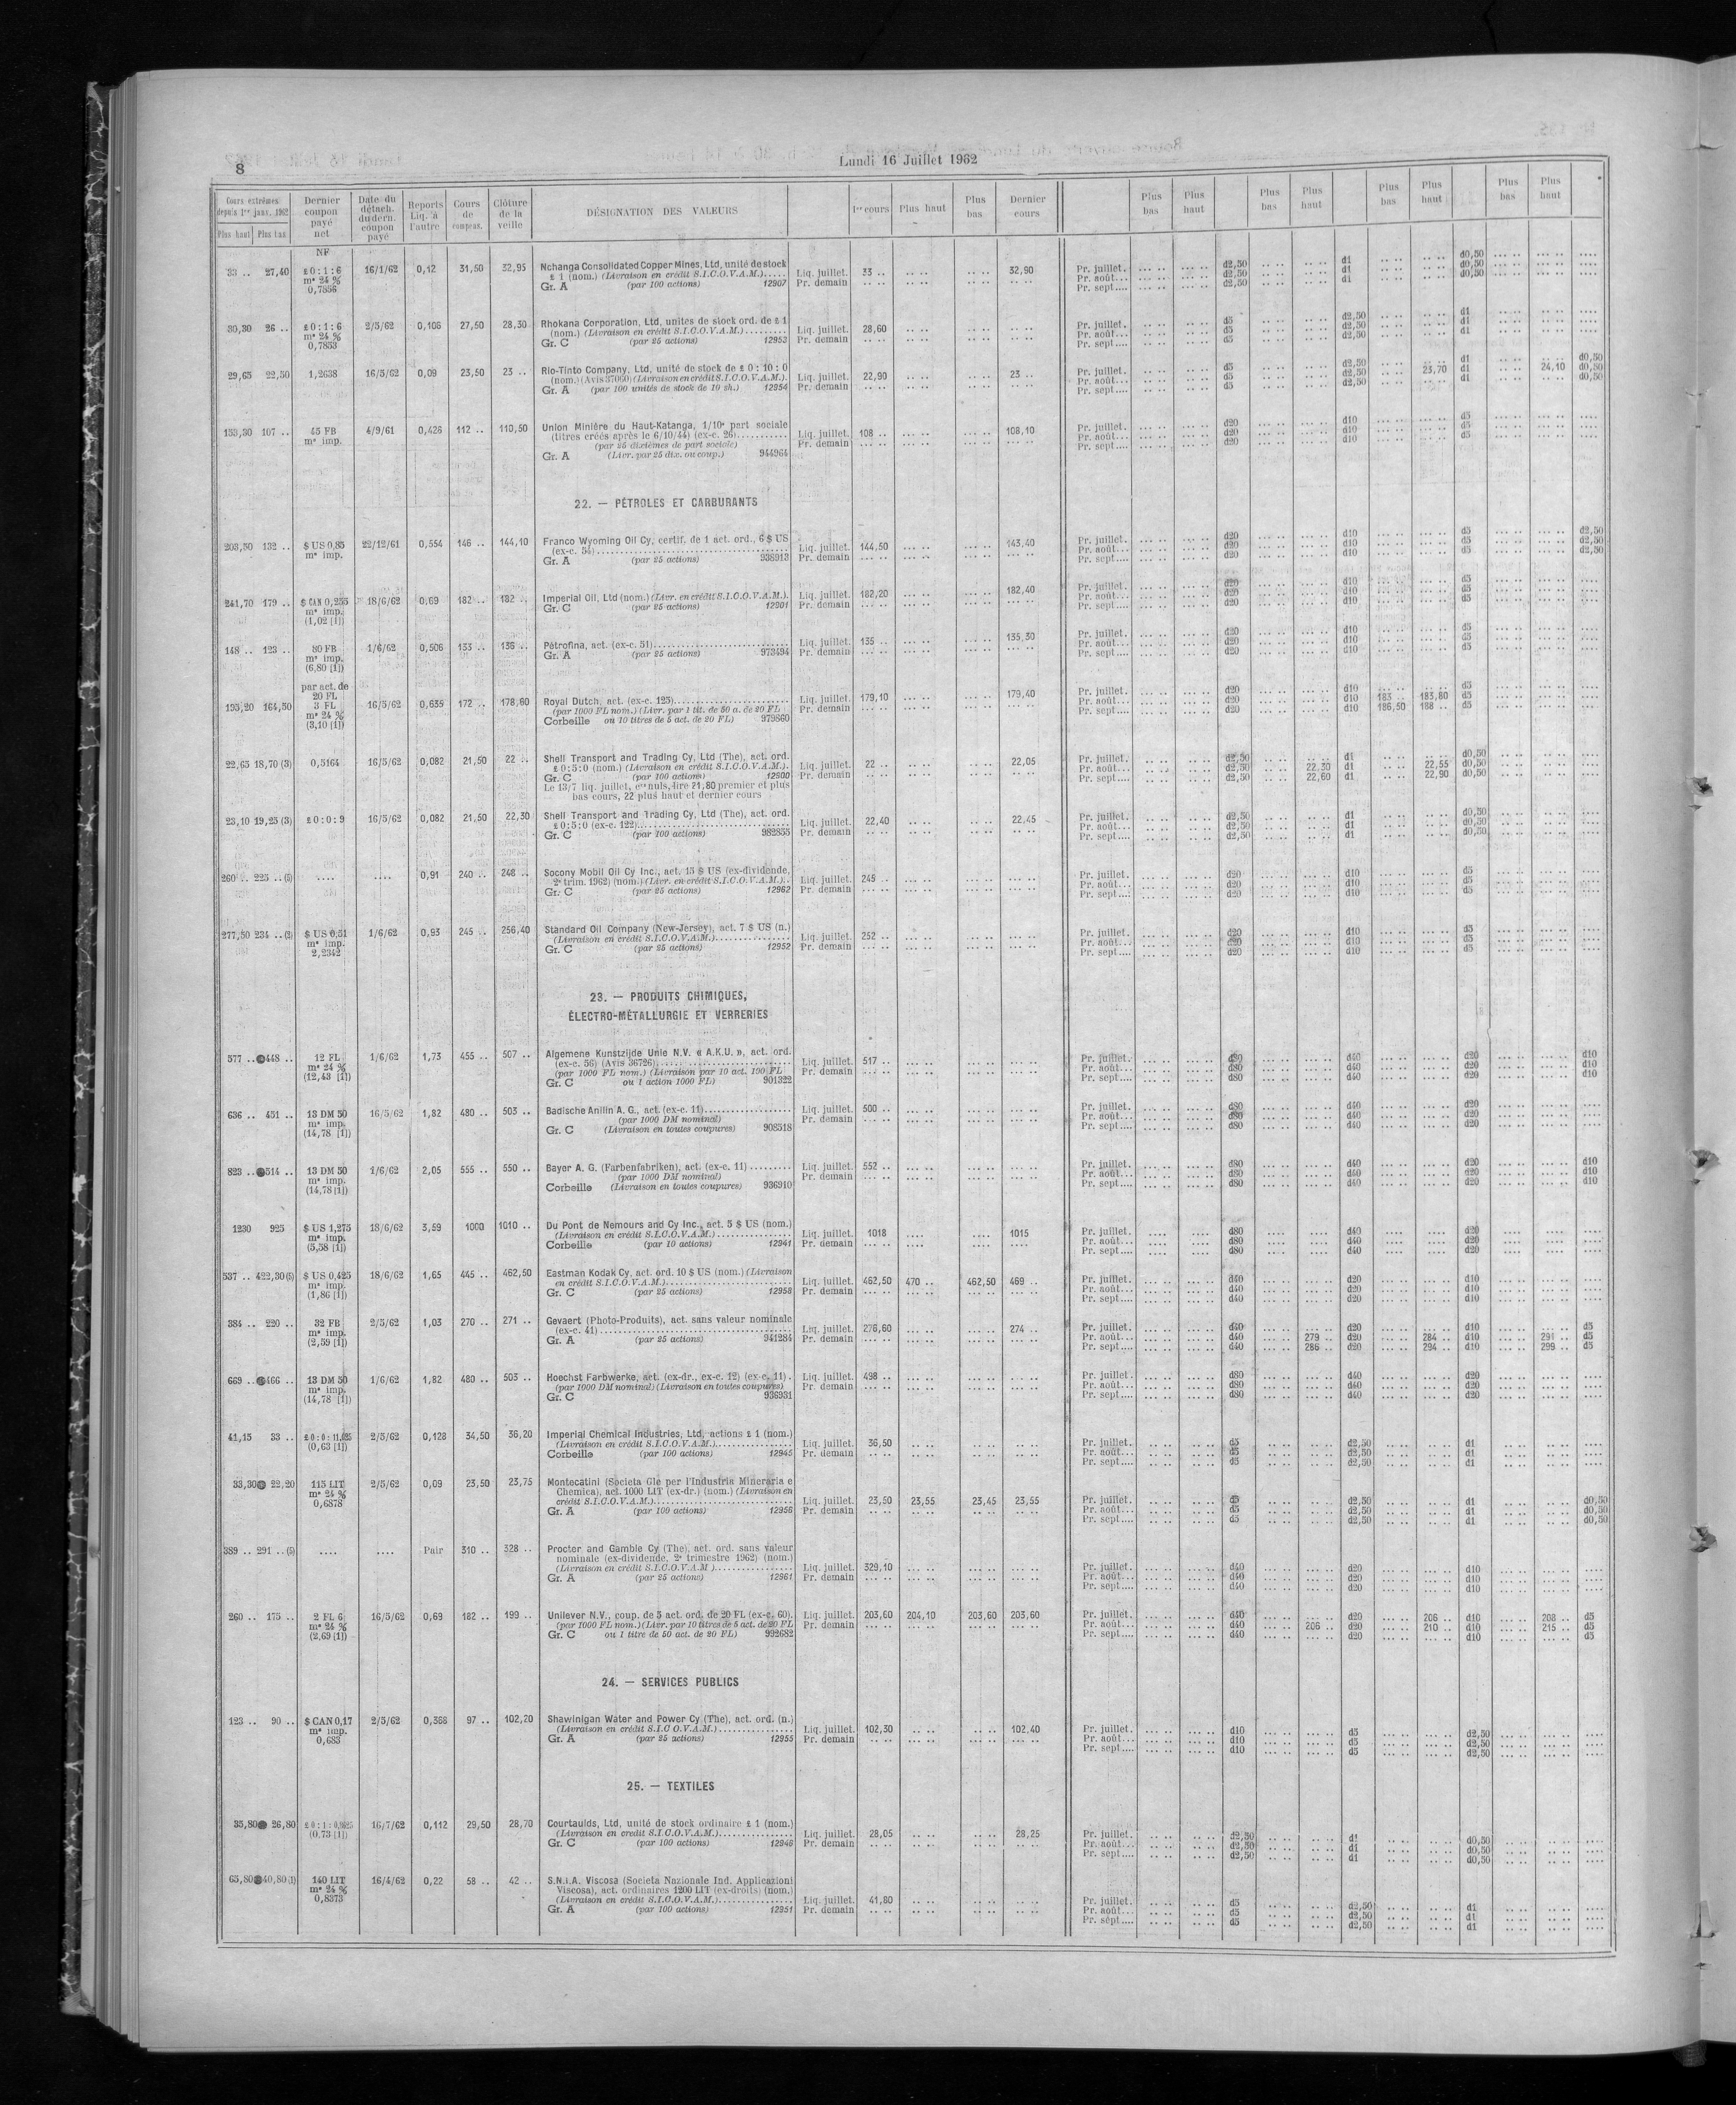 8
Lundi 16 Juillet 1962
Cours extrêmes depuis 1er janv. 1962 Plus haut Plus bas | Dernier coupon payé net | Date du détach. du dern. coupon payé | Reports Liq. à l'autre | Cours de compens. | Clôture de la veille | DÉSIGNATION DES VALEURS | 1er cours | Plus haut | Plus bas | Dernier cours | Plus bas | Plus haut | Plus bas | Plus haut | Plus bas | Plus haut | Plus bas | Plus haut
NF
33 .. 27,40 £ 0 : 1 : 6 16/1/62 0,12 31,50 32,95 Nchanga Consolidated Copper Mines, Ltd, unité de stock
m° 24 % £ 1 (nom.) (Livraison en crédit S.I.C.O.V.A.M.)..... Liq. juillet. 33 .. 32,90 Pr. juillet. d2,50 d1 d0,50
0,7856 Gr. A (par 100 actions) 12907 Pr. demain Pr. août... d2,50 d1 d0,50
Pr. sept.... d2,50 d1 d0,50
30,30 26 .. £ 0 : 1 : 6 2/5/62 0,106 27,50 28,30 Rhokana Corporation, Ltd, unités de stock ord. de £ 1
m° 24 % (nom.) (Livraison en crédit S.I.C.O.V.A.M.)........ Liq. juillet. 28,60 Pr. juillet. d5 d2,50 d1
0,7853 Gr. C (par 25 actions) 12953 Pr. demain Pr. août... d5 d2,50 d1
Pr. sept.... d5 d2,50 d1
29,65 22,50 1,2638 16/5/62 0,09 23,50 23 .. Rio-Tinto Company, Ltd, unité de stock de £ 0 : 10 : 0
(nom.) (Avis 37060) (Livraison en crédit S.I.C.O.V.A.M.). Liq. juillet. 22,90 23 .. Pr. juillet. d5 d2,50 d1 d0,50
Gr. A (par 100 unités de stock de 10 sh.) 12954 Pr. demain Pr. août... d5 d2,50 23,70 d1 24,10 d0,50
Pr. sept.... d5 d2,50 d1 d0,50
153,30 107 .. 45 FB 4/9/61 0,426 112 .. 110,50 Union Minière du Haut-Katanga, 1/10e part sociale
m° imp. (titres créés après le 6/10/44) (ex-c. 26)........... Liq. juillet. 108 .. 108,10 Pr. juillet. d20 d10 d5
(par 25 dixièmes de part sociale) Pr. demain Pr. août... d20 d10 d5
Gr. A (Livr. par 25 dix. ou coup.) 944964 Pr. sept.... d20 d10 d5
22. — PÉTROLES ET CARBURANTS
203,50 132 .. $ US 0,85 22/12/61 0,554 146 .. 144,10 Franco Wyoming Oil Cy, certif. de 1 act. ord., 6 $ US
m° imp. (ex-c. 54)........ Liq. juillet. 144,50 143,40 Pr. juillet. d20 d10 d5 d2,50
Gr. A (par 25 actions) 938913 Pr. demain Pr. août... d20 d10 d5 d2,50
Pr. sept.... d20 d10 d5 d2,50
241,70 179 .. $ CAN 0,255 18/6/62 0,69 182 .. 182 .. Imperial Oil, Ltd (nom.) (Livr. en crédit S.I.C.O.V.A.M.). Liq. juillet. 182,20 182,40 Pr. juillet. d20 d10 d5
m° imp. Gr. C (par 25 actions) 12901 Pr. demain Pr. août... d20 d10 d5
(1,02 [1]) Pr. sept.... d20 d10 d5
148 .. 123 .. 80 FB 1/6/62 0,506 133 .. 136 .. Pétrofina, act. (ex-c. 51)........ Liq. juillet. 135 .. 135,30 Pr. juillet. d20 d10 d5
m° imp. Gr. A (par 25 actions) 973494 Pr. demain Pr. août... d20 d10 d5
(6,80 [1]) Pr. sept.... d20 d10 d5
par act. de
20 FL
195,20 164,50 3 FL 16/5/62 0,635 172 .. 178,60 Royal Dutch, act. (ex-c. 123)........ Liq. juillet. 179,10 179,40 Pr. juillet. d20 d10 d5
m° 24 % (par 1000 FL nom.) (Livr. par 1 tit. de 50 a. de 20 FL Pr. demain Pr. août... d20 d10 183 .. 183,80 d5
(3,10 [1]) Corbeille ou 10 titres de 5 act. de 20 FL) 979860 Pr. sept.... d20 d10 186,50 188 .. d5
22,65 18,70 (3) 0,5164 16/5/62 0,082 21,50 22 .. Shell Transport and Trading Cy, Ltd (The), act. ord.
£ 0:5:0 (nom.) (Livraison en crédit S.I.C.O.V.A.M.) Liq. juillet. 22 .. 22,05 Pr. juillet. d2,50 d1 d0,50
Gr. C (par 100 actions) 12900 Pr. demain Pr. août... d2,50 22,30 d1 22,55 d0,50
Le 13/7 liq. juillet, en nuls, lire 21,80 premier et plus Pr. sept.... d2,50 22,60 d1 22,90 d0,50
bas cours, 22 plus haut et dernier cours
23,10 19,25 (3) £ 0 : 0 : 9 16/5/62 0,082 21,50 22,30 Shell Transport and Trading Cy, Ltd (The), act. ord.
£ 0:5:0 (ex-c. 122)........ Liq. juillet. 22,40 22,45 Pr. juillet. d2,50 d1 d0,50
Gr. C (par 100 actions) 982855 Pr. demain Pr. août... d2,50 d1 d0,50
Pr. sept.... d2,50 d1 d0,50
260 .. 225 .. (5) .... .... 0,91 240 .. 248 .. Socony Mobil Oil Cy Inc., act. 15 $ US (ex-dividende,
2e trim. 1962) (nom.) (Livr. en crédit S.I.C.O.V.A.M.).. Liq. juillet. 245 .. Pr. juillet. d20 d10 d5
Gr. C (par 25 actions) 12962 Pr. demain Pr. août... d20 d10 d5
Pr. sept.... d20 d10 d5
277,50 234 .. (3) $ US 0,51 1/6/62 0,93 245 .. 256,40 Standard Oil Company (New-Jersey), act. 7 $ US (n.)
m° imp. (Livraison en crédit S.I.C.O.V.A.M.)........ Liq. juillet. 252 .. Pr. juillet. d20 d10 d5
2,2342 Gr. C (par 25 actions) 12952 Pr. demain Pr. août... d20 d10 d5
Pr. sept.... d20 d10 d5
23. — PRODUITS CHIMIQUES,
ÉLECTRO-MÉTALLURGIE ET VERRERIES
577 .. 448 .. 12 FL 1/6/62 1,73 455 .. 507 .. Algemene Kunstzijde Unie N.V. « A.K.U. », act. ord.
m° 24 % (ex-c. 56) (Avis 36726)........ Liq. juillet. 517 .. Pr. juillet. d80 d40 d20 d10
(12,43 [1]) (par 1000 FL nom.) (Livraison par 10 act. 100 FL Pr. demain Pr. août... d80 d40 d20 d10
Gr. C ou 1 action 1000 FL) 901322 Pr. sept.... d80 d40 d20 d10
636 .. 451 .. 13 DM 50 16/5/62 1,82 480 .. 503 .. Badische Anilin A. G., act. (ex-c. 11)........ Liq. juillet. 500 .. Pr. juillet. d80 d40 d20
m° imp. (par 1000 DM nominal) Pr. demain Pr. août... d80 d40 d20
(14,78 [1]) Gr. C (Livraison en toutes coupures) 908518 Pr. sept.... d80 d40 d20
823 .. 514 .. 13 DM 50 1/6/62 2,05 555 .. 550 .. Bayer A. G. (Farbenfabriken), act. (ex-c. 11)......... Liq. juillet. 552 .. Pr. juillet. d80 d40 d20 d10
m° imp. (par 1000 DM nominal) Pr. demain Pr. août... d80 d40 d20 d10
(14,78 [1]) Corbeille (Livraison en toutes coupures) 936910 Pr. sept.... d80 d40 d20 d10
1230 925 $ US 1,275 18/6/62 3,59 1000 1010 .. Du Pont de Nemours and Cy Inc., act. 5 $ US (nom.)
m° imp. (Livraison en crédit S.I.C.O.V.A.M.)........ Liq. juillet. 1018 1015 Pr. juillet. d80 d40 d20
(5,38 [1]) Corbeille (par 10 actions) 12941 Pr. demain Pr. août... d80 d40 d20
Pr. sept.... d80 d40 d20
537 .. 422,30 (5) $ US 0,425 18/6/62 1,65 445 .. 462,50 Eastman Kodak Cy, act. ord. 10 $ US (nom.) (Livraison
m° imp. en crédit S.I.C.O.V.A.M.)........ Liq. juillet. 462,50 470 .. 462,50 469 .. Pr. juillet. d40 d20 d10
(1,86 [1]) Gr. C (par 25 actions) 12958 Pr. demain Pr. août... d40 d20 d10
Pr. sept.... d40 d20 d10
384 .. 220 .. 32 FB 2/5/62 1,03 270 .. 271 .. Gevaert (Photo-Produits), act. sans valeur nominale
m° imp. (ex-c. 41)........ Liq. juillet. 276,60 274 .. Pr. juillet. d40 d20 d10 d5
(2,59 [1]) Gr. A (par 25 actions) 941284 Pr. demain Pr. août... d40 279 .. d20 284 .. d10 291 .. d5
Pr. sept.... d40 286 .. d20 294 .. d10 299 .. d5
669 .. 466 .. 13 DM 50 1/6/62 1,82 480 .. 503 .. Hoechst Farbwerke, act. (ex-dr., ex-c. 12) (ex-c. 11). Liq. juillet. 498 .. Pr. juillet. d80 d40 d20
m° imp. (par 1000 DM nominal) (Livraison en toutes coupures) Pr. demain Pr. août... d80 d40 d20
(14,78 [1]) Gr. C 936931 Pr. sept.... d80 d40 d20
41,15 33 .. £ 0 : 0 : 11,025 2/5/62 0,128 34,50 36,20 Imperial Chemical Industries, Ltd, actions £ 1 (nom.)
(0,63 [1]) (Livraison en crédit S.I.C.O.V.A.M.)........ Liq. juillet. 36,50 Pr. juillet. d5 d2,50 d1
Corbeille (par 100 actions) 12945 Pr. demain Pr. août... d5 d2,50 d1
Pr. sept.... d5 d2,50 d1
33,30 22,20 115 LIT 2/5/62 0,09 23,50 23,75 Montecatini (Societa Gle per l'Industria Mineraria e
m° 24 % Chemica), act. 1000 LIT (ex-dr.) (nom.) (Livraison en
0,6878 crédit S.I.C.O.V.A.M.)........ Liq. juillet. 23,50 23,55 23,45 23,55 Pr. juillet. d5 d2,50 d1 d0,50
Gr. A (par 100 actions) 12956 Pr. demain Pr. août... d5 d2,50 d1 d0,50
Pr. sept.... d5 d2,50 d1 d0,50
389 .. 291 .. (5) .... .... Pair 310 .. 328 .. Procter and Gamble Cy (The), act. ord. sans valeur
nominale (ex-dividende, 2e trimestre 1962) (nom.)
(Livraison en crédit S.I.C.O.V.A.M.)........ Liq. juillet. 329,10 Pr. juillet. d40 d20 d10
Gr. A (par 25 actions) 12961 Pr. demain Pr. août... d40 d20 d10
Pr. sept.... d40 d20 d10
260 .. 175 .. 2 FL 6 16/5/62 0,69 182 .. 199 .. Unilever N.V., coup. de 5 act. ord. de 20 FL (ex-c. 60). Liq. juillet. 203,60 204,10 203,60 203,60 Pr. juillet. d40 d20 206 .. d10 208 .. d5
m° 24 % (par 1000 FL nom.) (Livr. par 10 titres de 5 act. de 20 FL Pr. demain Pr. août... d40 206 .. d20 210 .. d10 215 .. d5
(2,69 [1]) Gr. C ou 1 titre de 50 act. de 20 FL) 992682 Pr. sept.... d40 d20 d10 d5
24. — SERVICES PUBLICS
123 .. 90 .. $ CAN 0,17 2/5/62 0,368 97 .. 102,20 Shawinigan Water and Power Cy (The), act. ord. (n.)
m° imp. (Livraison en crédit S.I.C.O.V.A.M.)........ Liq. juillet. 102,30 102,40 Pr. juillet. d10 d5 d2,50
0,683 Gr. A (par 25 actions) 12955 Pr. demain Pr. août... d10 d5 d2,50
Pr. sept.... d10 d5 d2,50
25. — TEXTILES
35,80 26,80 £ 0 : 1 : 16/7/62 0,112 29,50 28,70 Courtaulds, Ltd, unité de stock ordinaire £ 1 (nom.)
(0,73 [1]) (Livraison en crédit S.I.C.O.V.A.M.)........ Liq. juillet. 28,05 28,25 Pr. juillet. d2,50 d1 d0,50
Gr. C (par 100 actions) 12946 Pr. demain Pr. août... d2,50 d1 d0,50
Pr. sept.... d2,50 d1 d0,50
65,80 40,80 140 LIT 16/4/62 0,22 58 .. 42 .. S.N.I.A. Viscosa (Societa Nazionale Ind. Applicazioni
m° 24 % Viscosa), act. ordinaires 1200 LIT (ex-droits) (nom.)
0,8373 (Livraison en crédit S.I.C.O.V.A.M.)........ Liq. juillet. 41,80 Pr. juillet. d5 d2,50 d1
Gr. A (par 100 actions) 12951 Pr. demain Pr. août... d5 d2,50 d1
Pr. sept.... d5 d2,50 d1